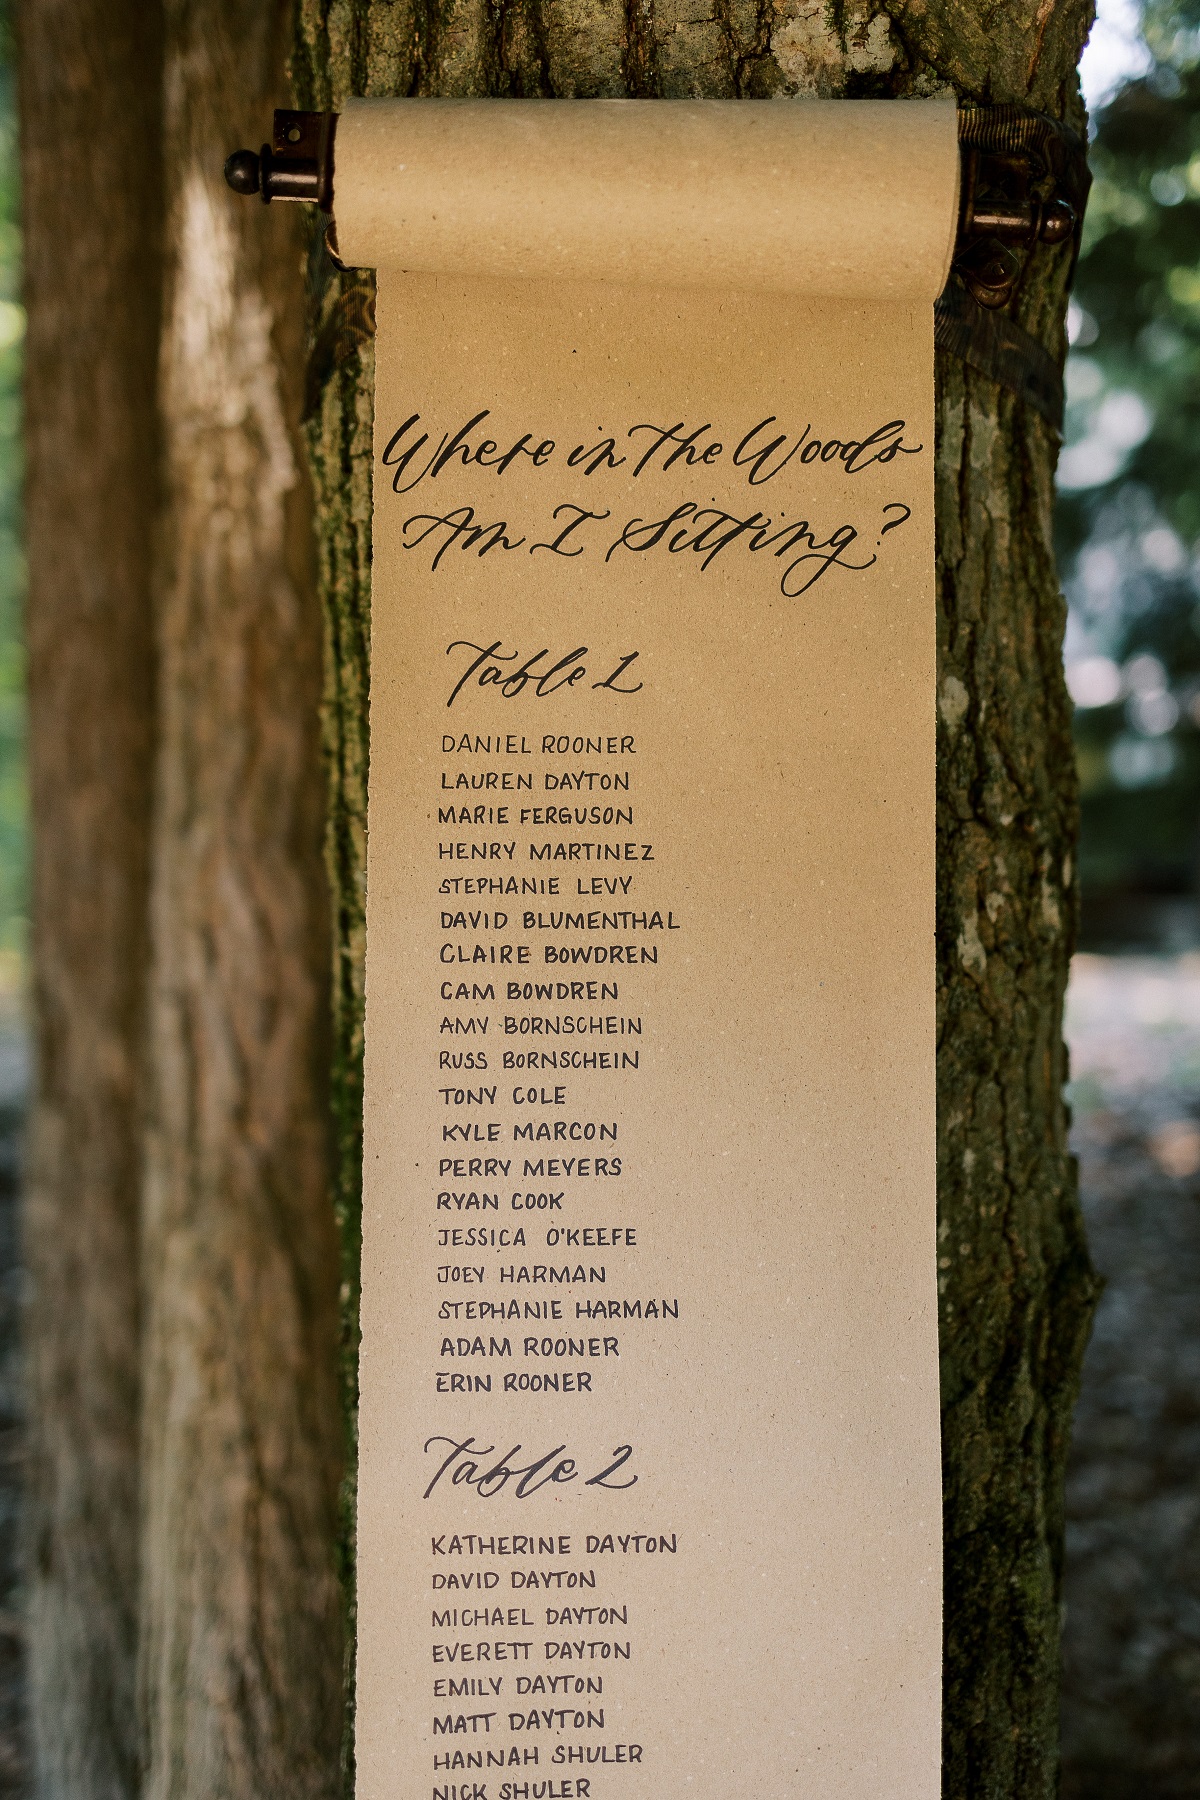 Where in the Woods
Am I Sitting?
Table 1
DANIEL ROONER
LAUREN DAYTON
MARIE FERGUSON
HENRY MARTINEZ
STEPHANIE LEVY
DAVID BLUMENTHAL
CLAIRE BOWDREN
CAM BOWDREN
AMY BORNSCHEIN
RUSS BORNSCHEIN
TONY COLE
KYLE MARCON
PERRY MEYERS
RYAN COOK
JESSICA O'KEEFE
JOEY HARMAN
STEPHANIE HARMAN
ADAM ROONER
ERIN ROONER
Table 2
KATHERINE DAYTON
DAVID DAYTON
MICHAEL DAYTON
EVERETT DAYTON
EMILY DAYTON
MATT DAYTON
HANNAH SHULER
NICK SHULER